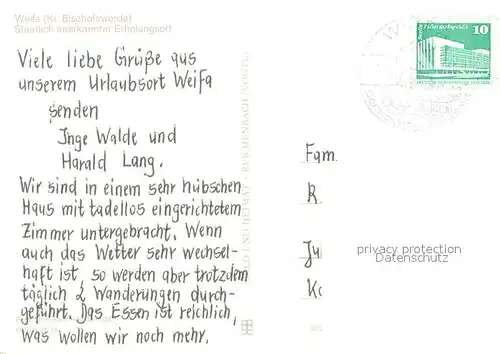 Weifa (Kr. Bischofswerda)
Staatlich anerkannter Erholungsort
Viele liebe Grüße aus
unserem Urlaubsort Weifa
senden
Inge Walde und
Harald Lang.
Wir sind in einem sehr hübschen
Haus mit tadellos eingerichtetem
Zimmer untergebracht. Wenn
auch das Wetter sehr wechsel-
haft ist, so werden aber trotzdem
täglich 2 Wanderungen durch-
geführt. Das Essen ist reichlich,
was wollen wir noch mehr.
BILD UND HEIMAT REICHENBACH
10
Fam
R
Ju
Ko
privacy protection
Datenschutz